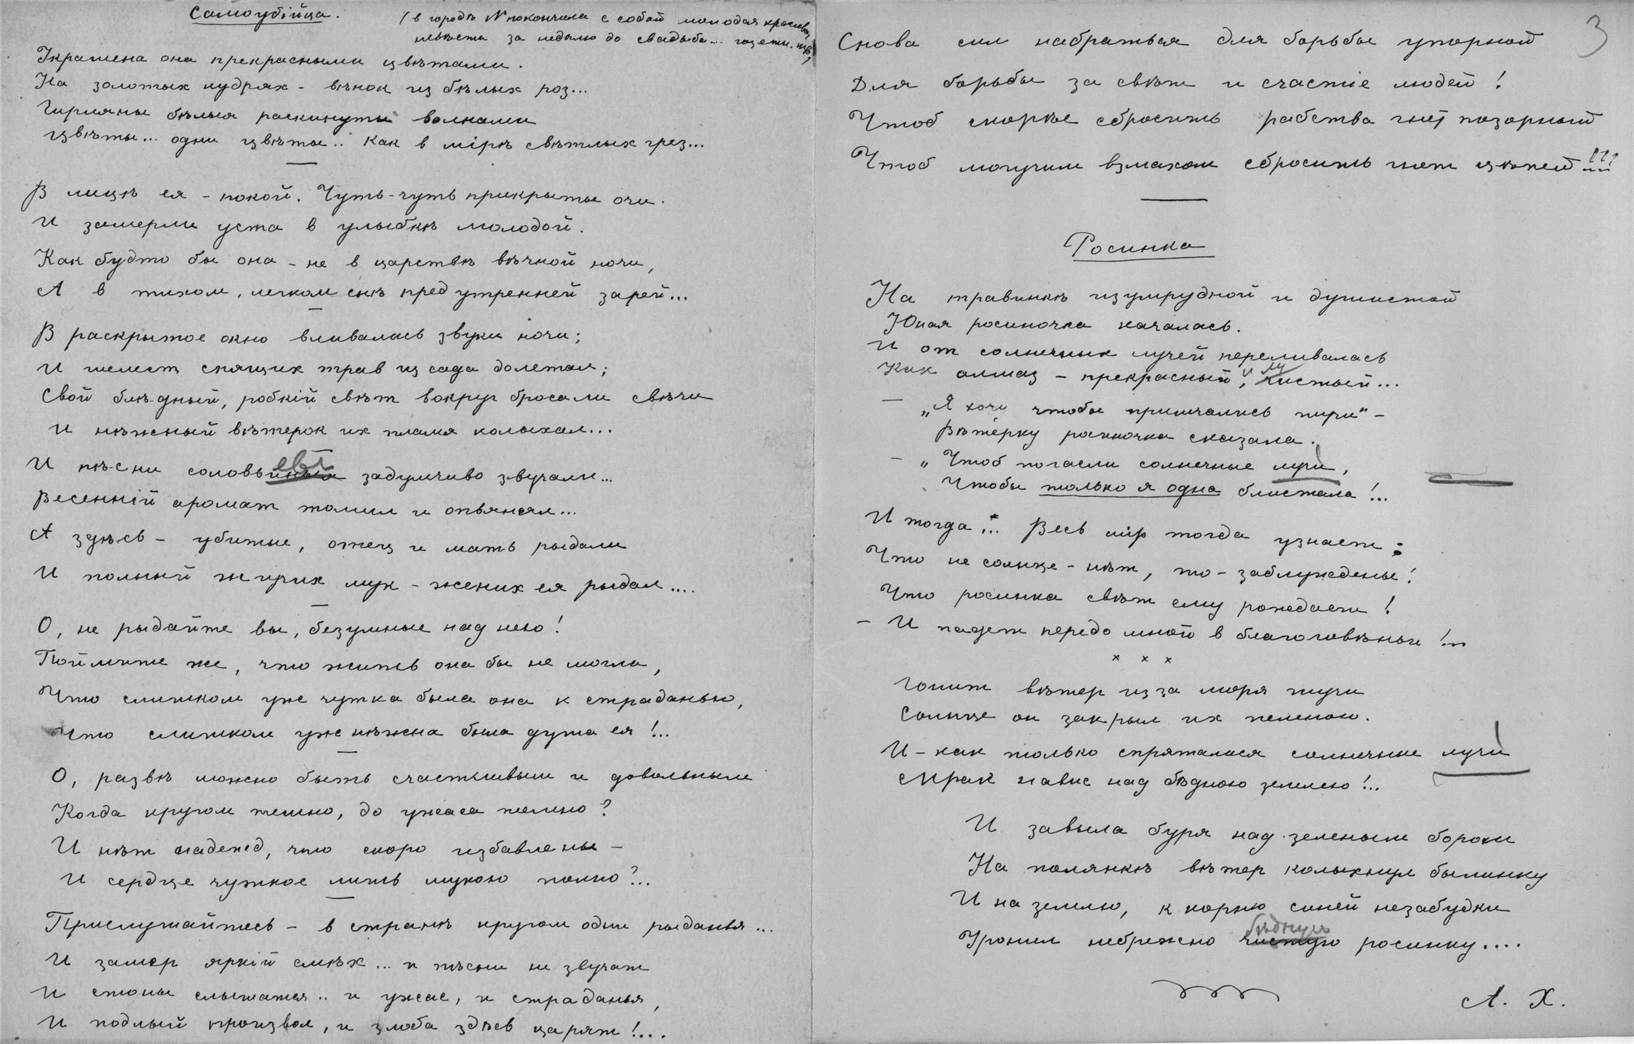 Самоубійца.
(в городѣ N покончила с собой молодая красав.
невѣста за недѣлю до свадьбы... газетн. изв.)
Украшена она прекрасными цвѣтами.
На золотых кудрях - вѣнок из бѣлых роз...
Гирляны бѣлыя раскинуты волнами
Цвѣты... одни цвѣты.. Как в мірѣ свѣтлых грез...
В лицѣ ея - покой. Чуть-чуть прикрыты очи.
И замерли уста в улыбкѣ молодой.
Как будто бы она - не в царствѣ вѣчной ночи,
А в тихом, легком снѣ пред утренней зарей...
В раскрытое окно вливались звуки ночи;
И шелест спящих трав из сада долетал;
Свой блѣдный, робкій свѣт вокруг бросали свѣчи
И нѣжный вѣтерок их пламя колыхал...
И пѣсни соловьиныя евы задумчиво звучали...
Весенній аромат томил и опьянял...
А здѣсь - убитые, отец и мать рыдали
И полный жгучих мук - жених ея рыдал....
О, не рыдайте вы, безумные над нею!
Поймите же, что жить она бы не могла,
Что слишком уж чутка была она к страданью,
Что слишком уж нѣжна была душа ея!..
О, развѣ можно быть счастливым и довольным
Когда кругом темно, до ужаса темно?
И нѣт надежд, что скоро избавлены -
И сердце чуткое лишь мукою полно?..
Прислушайтесь - в странѣ кругом одни рыданья...
И замер яркій смѣх... и пѣсни не звучат
И стоны слышатся.. и ужас, и страданья,
И подлый произвол, и злоба здѣсь царят!...
3
Снова сил набраться для борьбы упорной
Для борьбы за свѣт и счастіе людей!
Чтоб скорѣе сбросить рабства гнет позорный
Чтоб могучим взмахом сбросить гнет цѣпей!!!
Росинка
На травинкѣ изумрудной и душистой
Юная росиночка качалась.
И от солнечных лучей переливалась
Как алмаз - прекрасный, и чистый...
- „Я хочу чтобы примчались тучи" -
Вѣтерку росиночка сказала.
- „Чтоб погасли солнечные лучи,
Чтобы только я одна блистала!..
И тогда... Весь мір тогда узнает:
Что не солнце - нѣт, то - заблужденье!
Что росинка свѣт ему рождает!
- И падет передо мной в благоговѣньи!..
х х х
Гонит вѣтер из за моря тучи
Солнце он закрыл их пеленою.
И - как только спряталися солнечные лучи
Мрак навис над бѣдною землею!..
И завыла буря над зеленым бором
На полянкѣ вѣтер колыхнул былинку
И на землю, к корню синей незабудки
Уронил небрежно чистую бѣдную росинку....
А. Х.